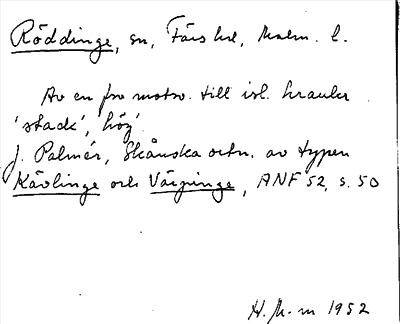 Röddinge, sn, Färs hd, Malm. l.
Av en fsv motsv. till isl. hraukr
'stack', 'hög'.
J. Palmér, Skånska ortn. av typen
Kävlinge och Värpinge, ANF 52, s. 50
1952